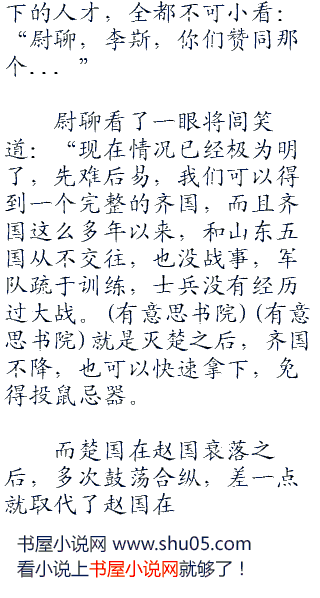 下的人才，全都不可小看：
“尉聊，李斯，你们赞同那
个... ”
尉聊看了一眼将闾笑
道：“现在情况已经极为明
了，先难后易，我们可以得
到一个完整的齐国，而且齐
国这么多年以来，和山东五
国从不交往，也没战事，军
队疏于训练，士兵没有经历
过大战。(有意思书院)(有意
思书院)就是灭楚之后，齐国
不降，也可以快速拿下，免
得投鼠忌器。
而楚国在赵国衰落之
后，多次鼓荡合纵，差一点
就取代了赵国在
书屋小说网 www.shu05.com
看小说上书屋小说网就够了！